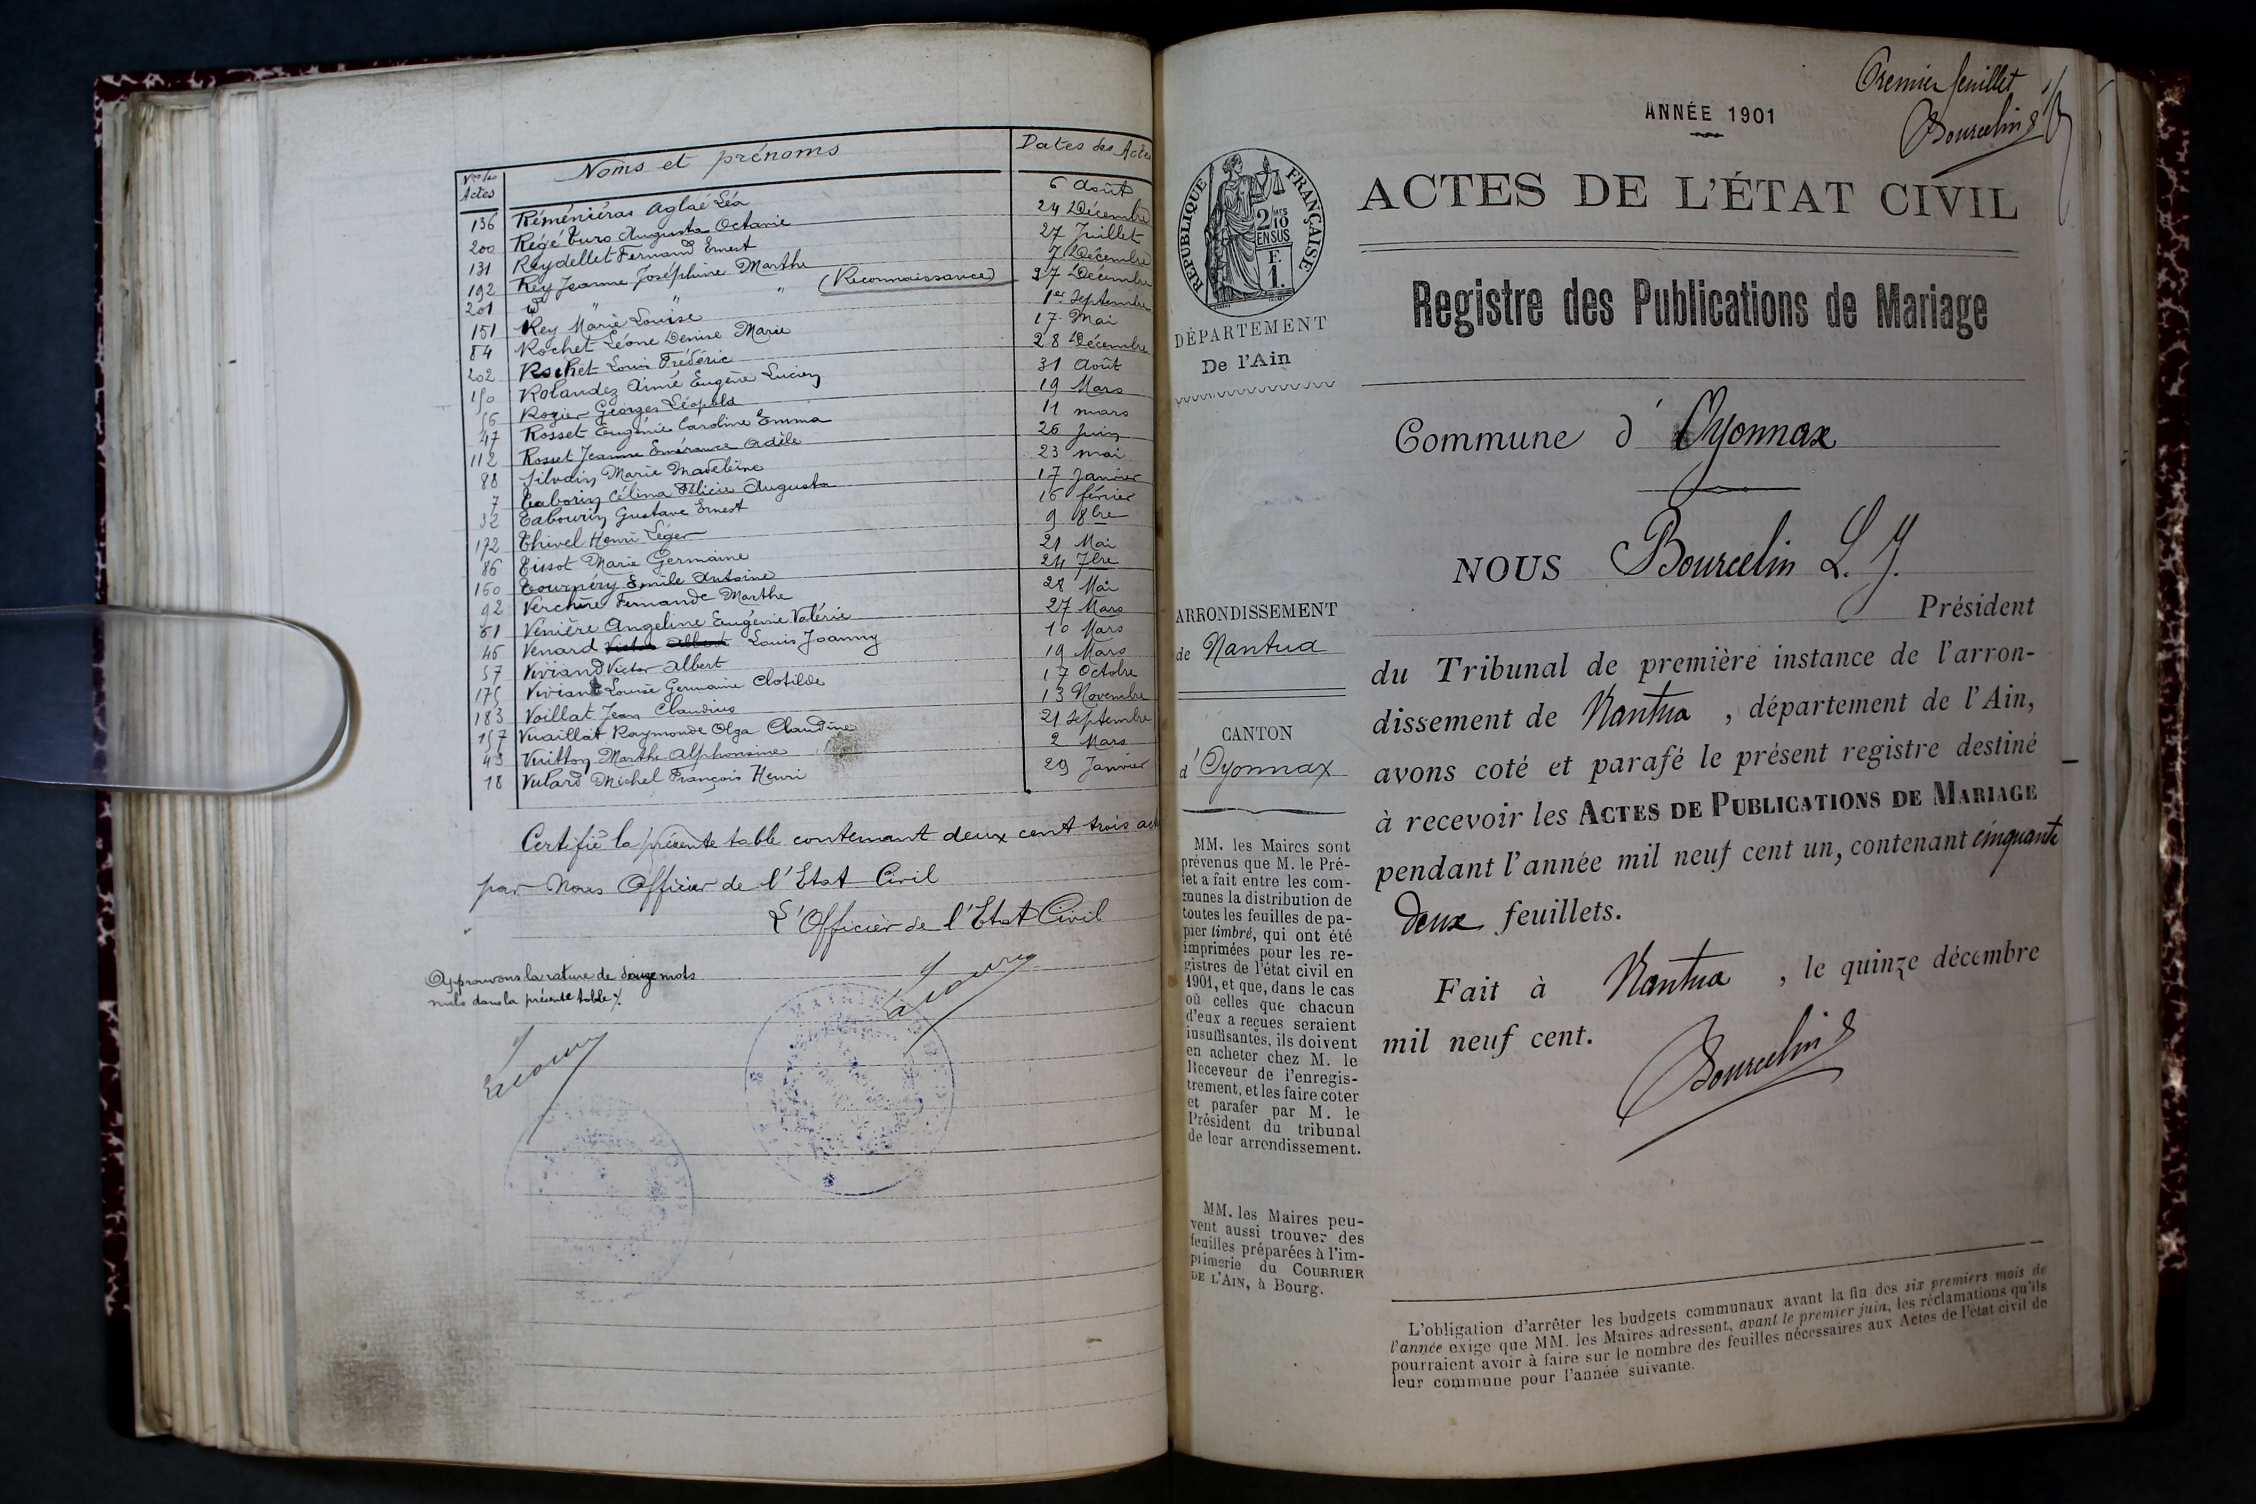 Nos des Actes | Noms et prénoms | Dates des Actes
136 Réméniéras Aglaé Léa 6 Août
200 Régé Turo Augusta Octavie 24 Décembre
131 Reydellet Fernand Ernest 27 Juillet
192 Rey Jeanne Joséphine Marthe 7 Décembre
201 d° " " " (Reconnaissance) 27 Décembre
151 Rey Marie Louise 1er Septembre
84 Rochet Léone Denise Marie 17 Mai
202 Rochet Louis Frédéric 28 Décembre
150 Rolandez Aimé Eugène Lucien 31 Août
56 Rogier Georges Léopold 19 Mars
47 Rosset Eugénie Caroline Emma 11 mars
112 Rosset Jeanne Emérance Adèle 26 Juin
88 Silvain Marie Madeleine 23 mai
7 Taborin Célina Félicie Augusta 17 Janvier
32 Tabourin Gustave Ernest 16 février
172 Thivel Henri Léger 9 8bre
86 Tissot Marie Germaine 21 Mai
160 Tournéry Emile Antoine 24 7bre
92 Verchère Fernande Marthe 28 Mai
61 Venière Angeline Eugénie Valérie 27 Mars
46 Venard Victor Albert Louis Joanny 10 Mars
57 Viviand Victor Albert 19 Mars
175 Viviant Louise Germaine Clotilde 17 Octobre
183 Voillat Jean Claudius 13 Novembre
157 Vuaillat Raymonde Olga Claudine 21 Septembre
43 Vuitton Marthe Alphonsine 2 Mars
18 Vulard Michel François Henri 29 Janvier
Certifié la présente table contenant deux cent trois
par Nous Officier de l'Etat Civil
L'Officier de l'Etat Civil
Approuvons la rature de douze mots
nuls dans la présente table
Premier feuillet
Bourcelin
ANNÉE 1901
ACTES DE L'ÉTAT CIVIL
Registre des Publications de Mariage
RÉPUBLIQUE FRANÇAISE
2/10 EN SUS
1 F.
DÉPARTEMENT
De l'Ain
Commune d'Oyonnax
NOUS Bourcelin L. J.
Président
ARRONDISSEMENT
de Nantua
CANTON
d'Oyonnax
du Tribunal de première instance de l'arron-
dissement de Nantua, département de l'Ain,
avons coté et parafé le présent registre destiné
à recevoir les ACTES DE PUBLICATIONS DE MARIAGE
pendant l'année mil neuf cent un, contenant cinquante
deux feuillets.
Fait à Nantua, le quinze décembre
mil neuf cent.
Bourcelin
MM. les Maires sont
prévenus que M. le Pré-
fet a fait entre les com-
munes la distribution de
toutes les feuilles de pa-
pier timbré, qui ont été
imprimées pour les re-
gistres de l'état civil en
1901, et que, dans le cas
où celles que chacun
d'eux a reçues seraient
insuffisantes, ils doivent
en acheter chez M. le
Receveur de l'enregis-
trement, et les faire coter
et parafer par M. le
Président du tribunal
de leur arrondissement.
MM. les Maires peu-
vent aussi trouver des
feuilles préparées à l'im-
primerie du COURRIER
DE L'AIN, à Bourg.
L'obligation d'arrêter les budgets communaux avant la fin des six premiers mois de
l'année exige que MM. les Maires adressent, avant le premier juin, les réclamations qu'ils
pourraient avoir à faire sur le nombre des feuilles nécessaires aux Actes de l'état civil de
leur commune pour l'année suivante.